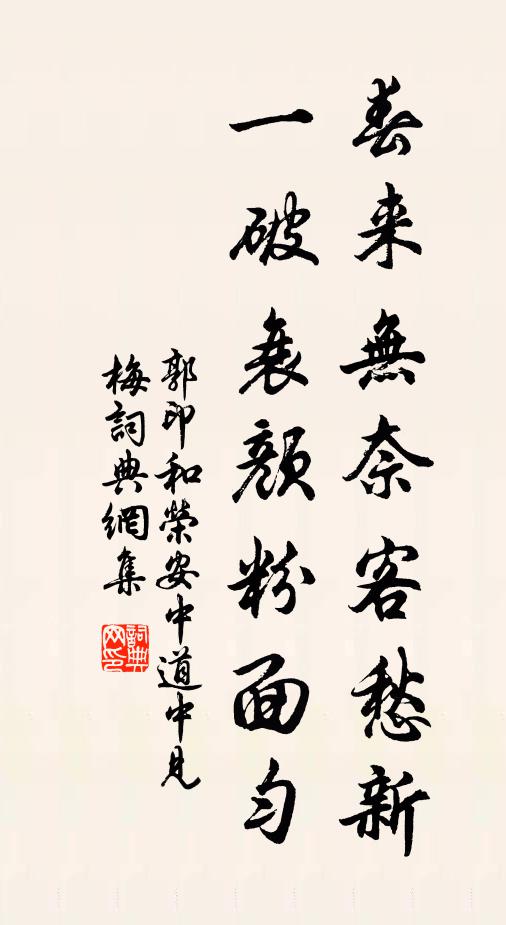 春来無奈客愁新
一破衰顏粉面勻
郭印和榮安中道中見
梅詞典網集
詞典
网印